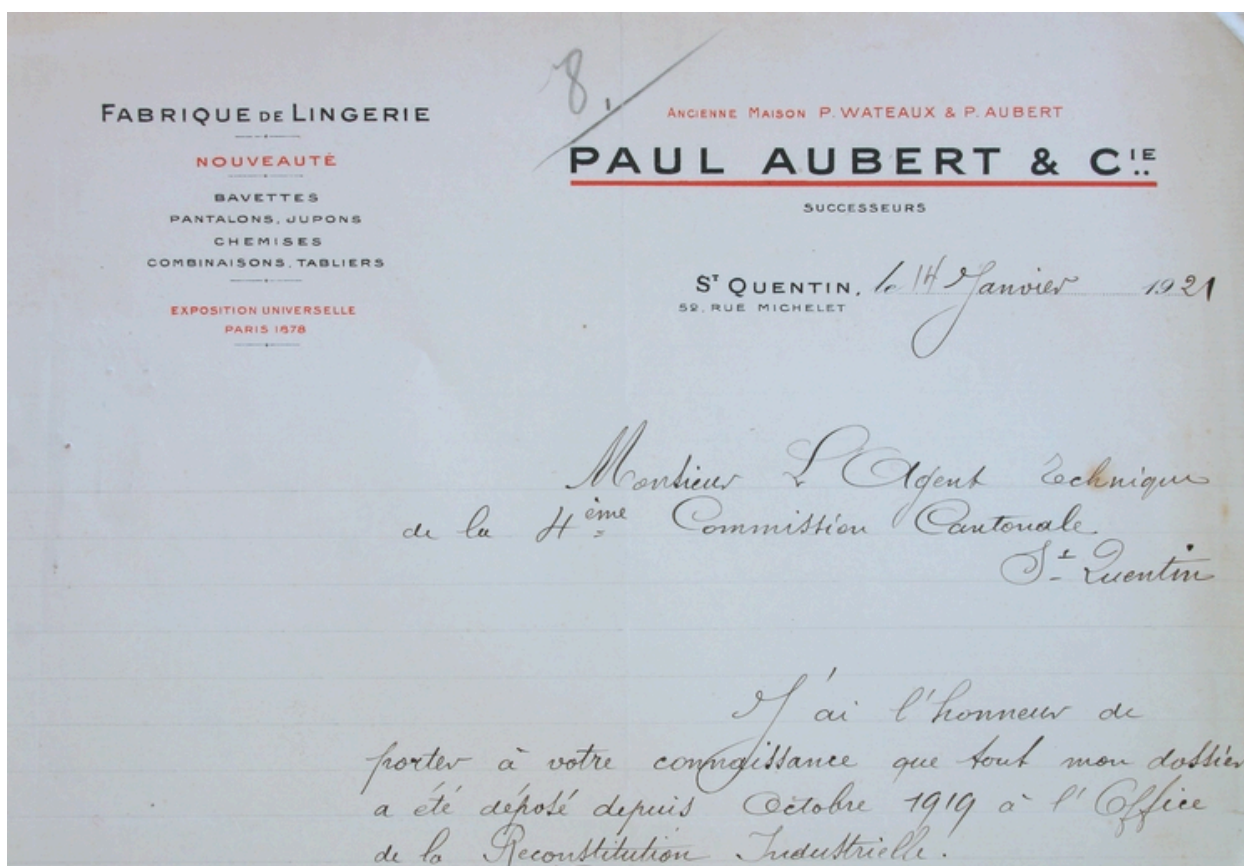 8.
FABRIQUE DE LINGERIE
NOUVEAUTÉ
BAVETTES
PANTALONS, JUPONS
CHEMISES
COMBINAISONS, TABLIERS
EXPOSITION UNIVERSELLE
PARIS 1878
ANCIENNE MAISON P. WATEAUX & P. AUBERT
PAUL AUBERT & CIE
SUCCESSEURS
ST QUENTIN, le 14 Janvier 1921
52, RUE MICHELET
Monsieur L'Agent Technique
de la 4ème Commission Cantonale
St Quentin
J'ai l'honneur de
porter à votre connaissance que tout mon dossier
a été déposé depuis Octobre 1919 à l'Office
de la Reconstitution Industrielle.